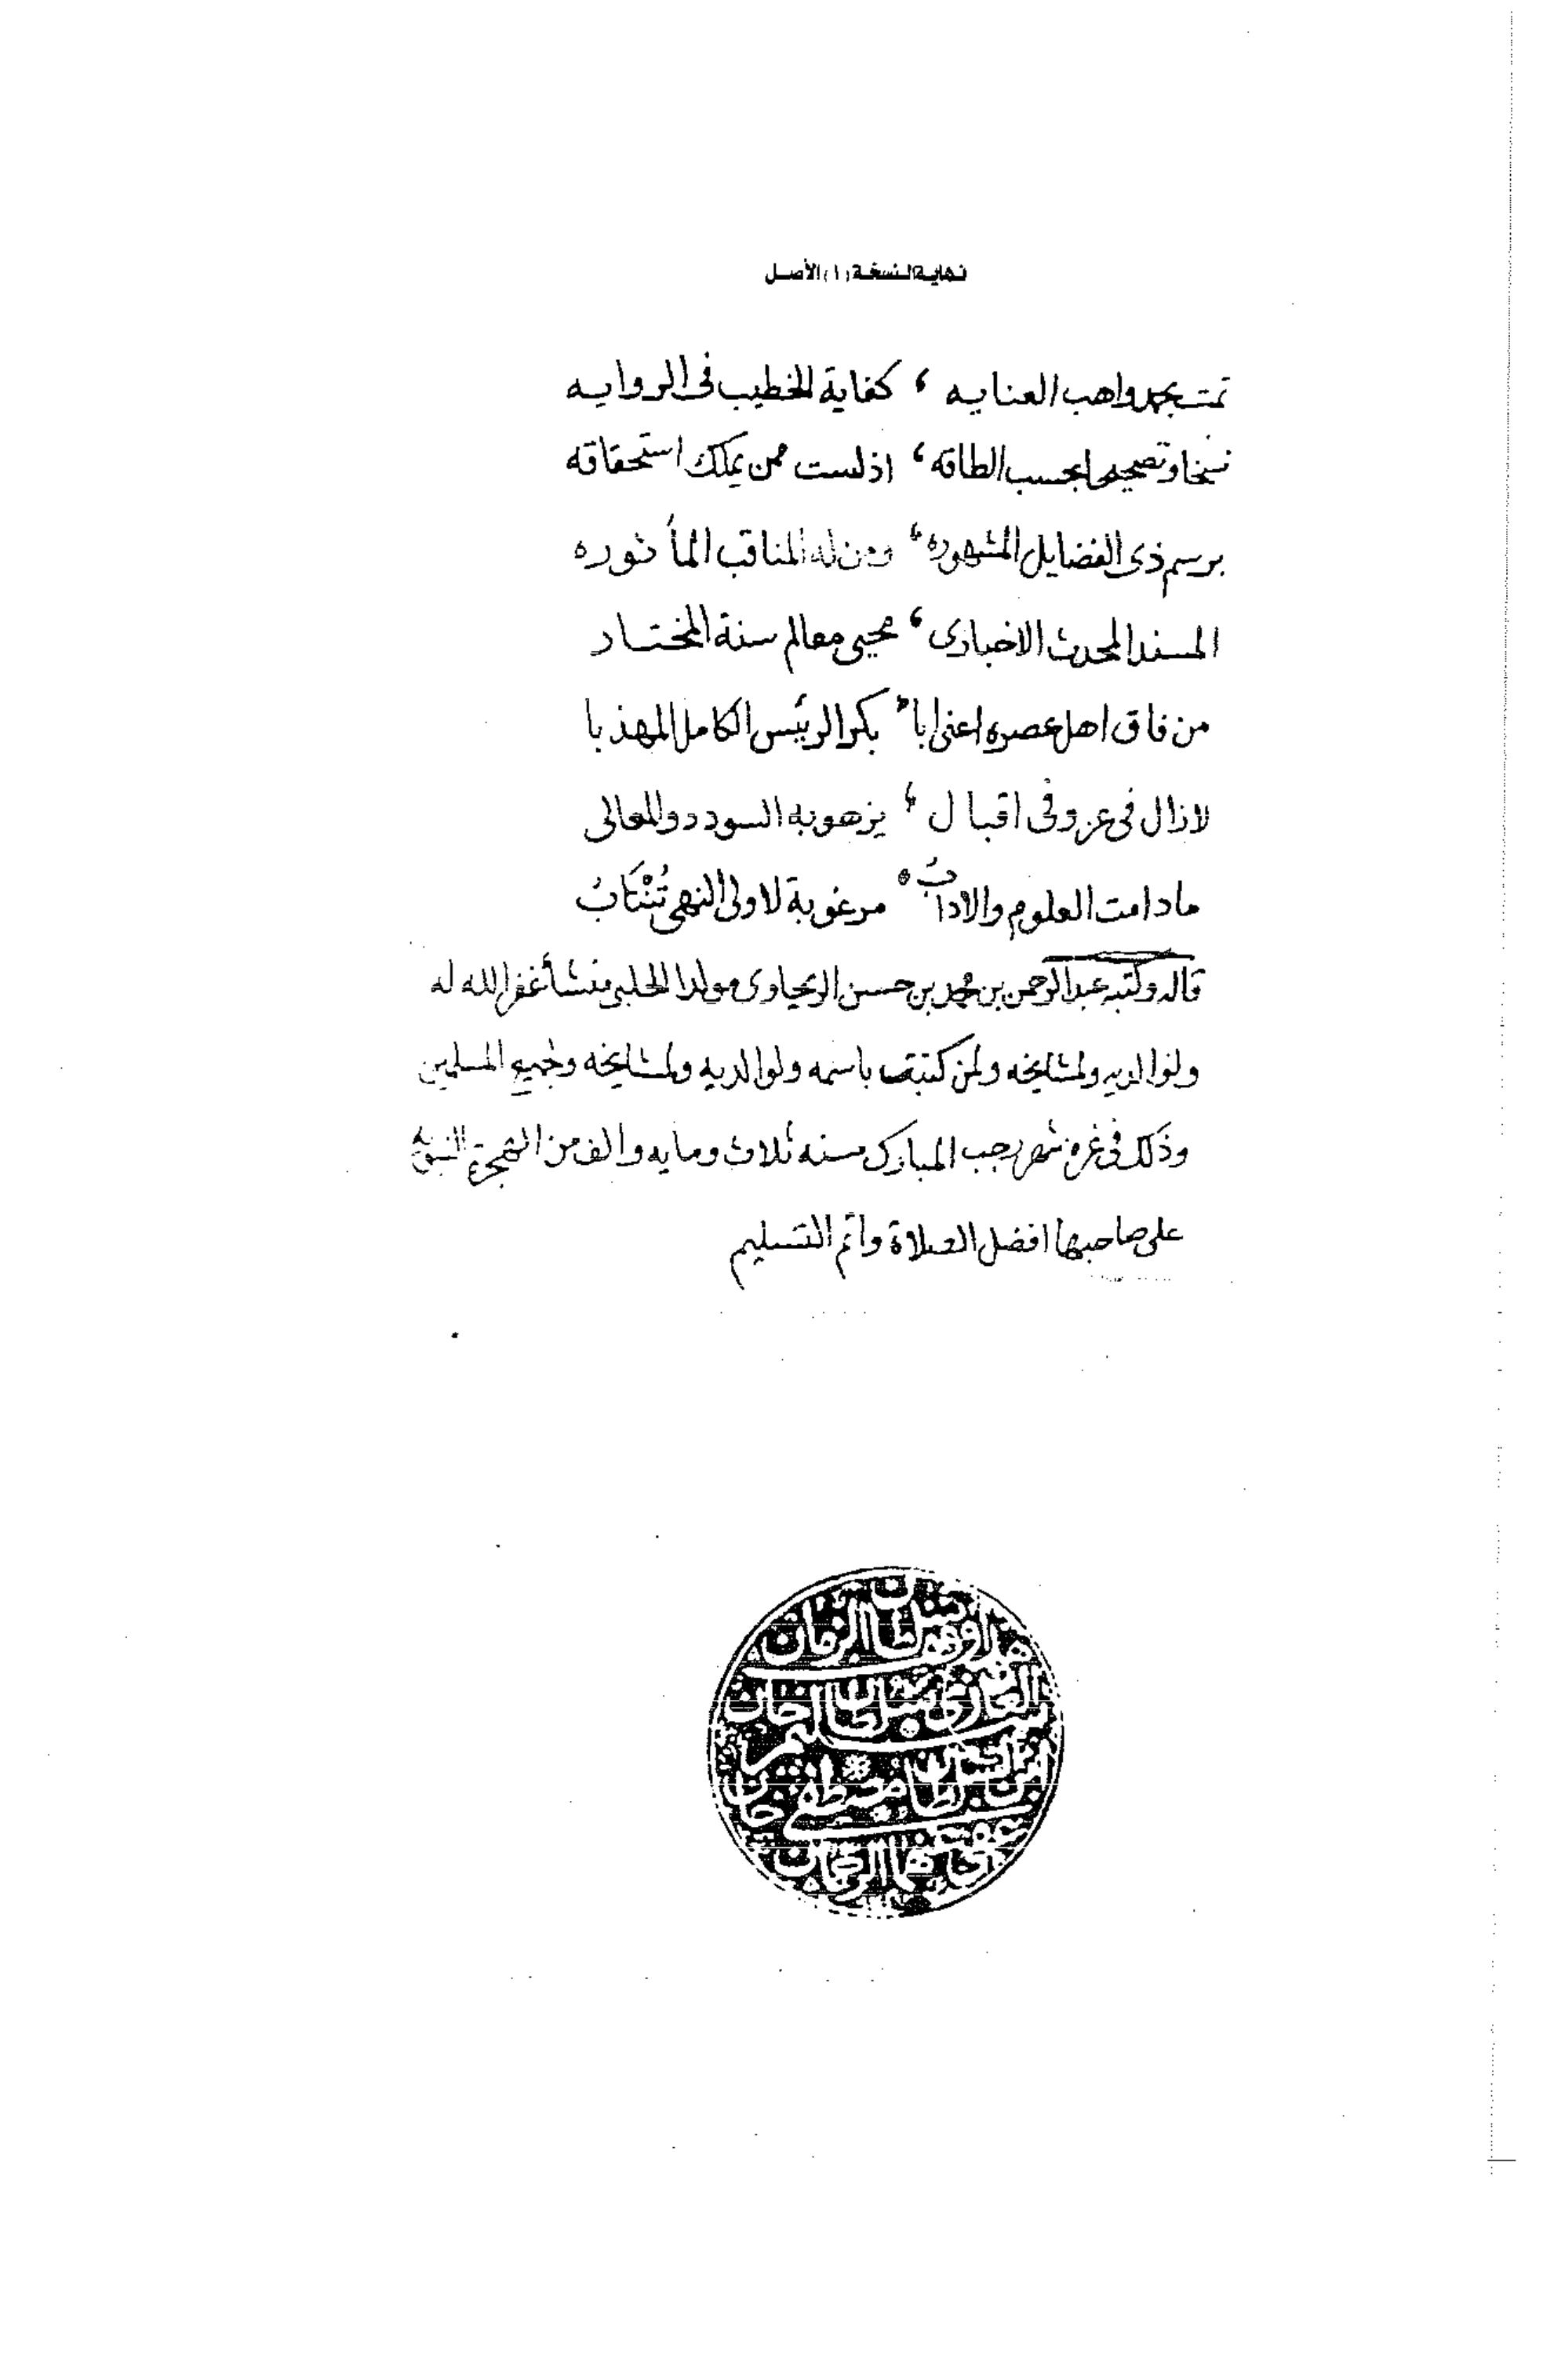 نهاية النسخة (١) الأصل
تمت بحمد واهب العنايه ، كفاية الخطيب فى الروايه
نسخا وتصحيحا بحسب الطاقه ، اذ لست ممن يملك استحقاقه
برسم ذى الفضايل المشهوره ، ومن له المناقب المأثوره
المسند المحدث الاخبارى ، محيى معالم سنة المختار
من فاق اهل عصره اعنى ابا ، بكر الرئيس الكامل المهذبا
لا زال فى عز وفى اقبال ، يزهو به السودد والمعالى
ما دامت العلوم والادابُ ، مرغوبة لاولى النهى تُنْتَابُ
قاله وكتبه عبد الرحمن بن محمد بن حسن الريحاوى مولدا الحلبى منشأ غفر الله له
ولوالديه ولمشايخه ولمن كتبت باسمه ولوالديه ولمشايخه ولجميع المسلمين
وذلك فى غرة شهر رجب المبارك سنه ثلاث ومايه والف من الهجرة النبويه
على صاحبها افضل الصلاة واتم التسليم
سلطان الزمان
الغازى سلطان سليم خان
بن السلطان مصطفى خان
الرحمان